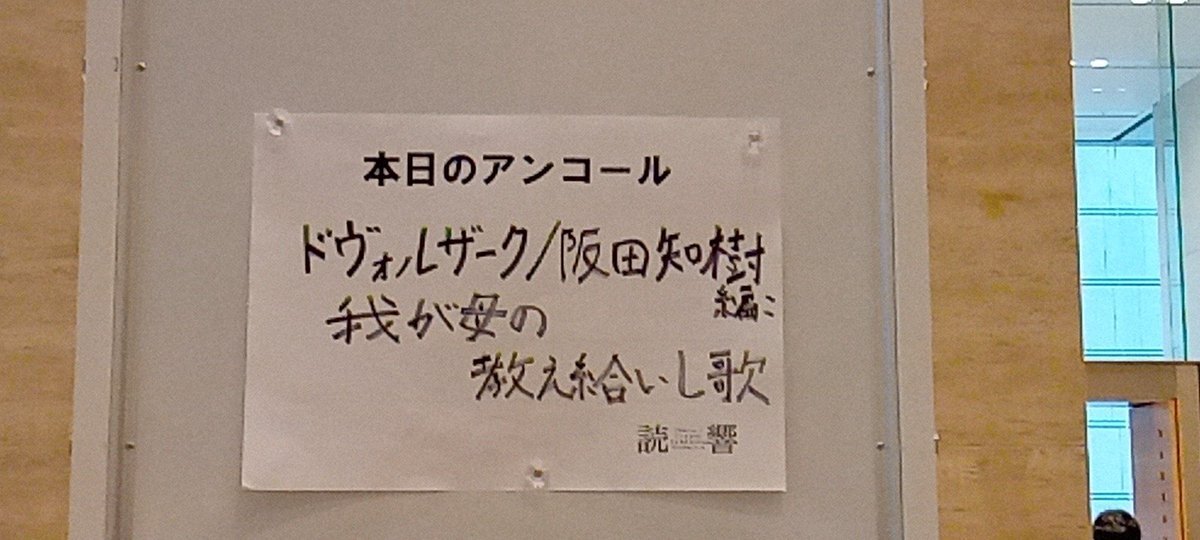 本日のアンコール
ドヴォルザーク/阪田知樹
編:
我が母の
教え給いし歌
読響